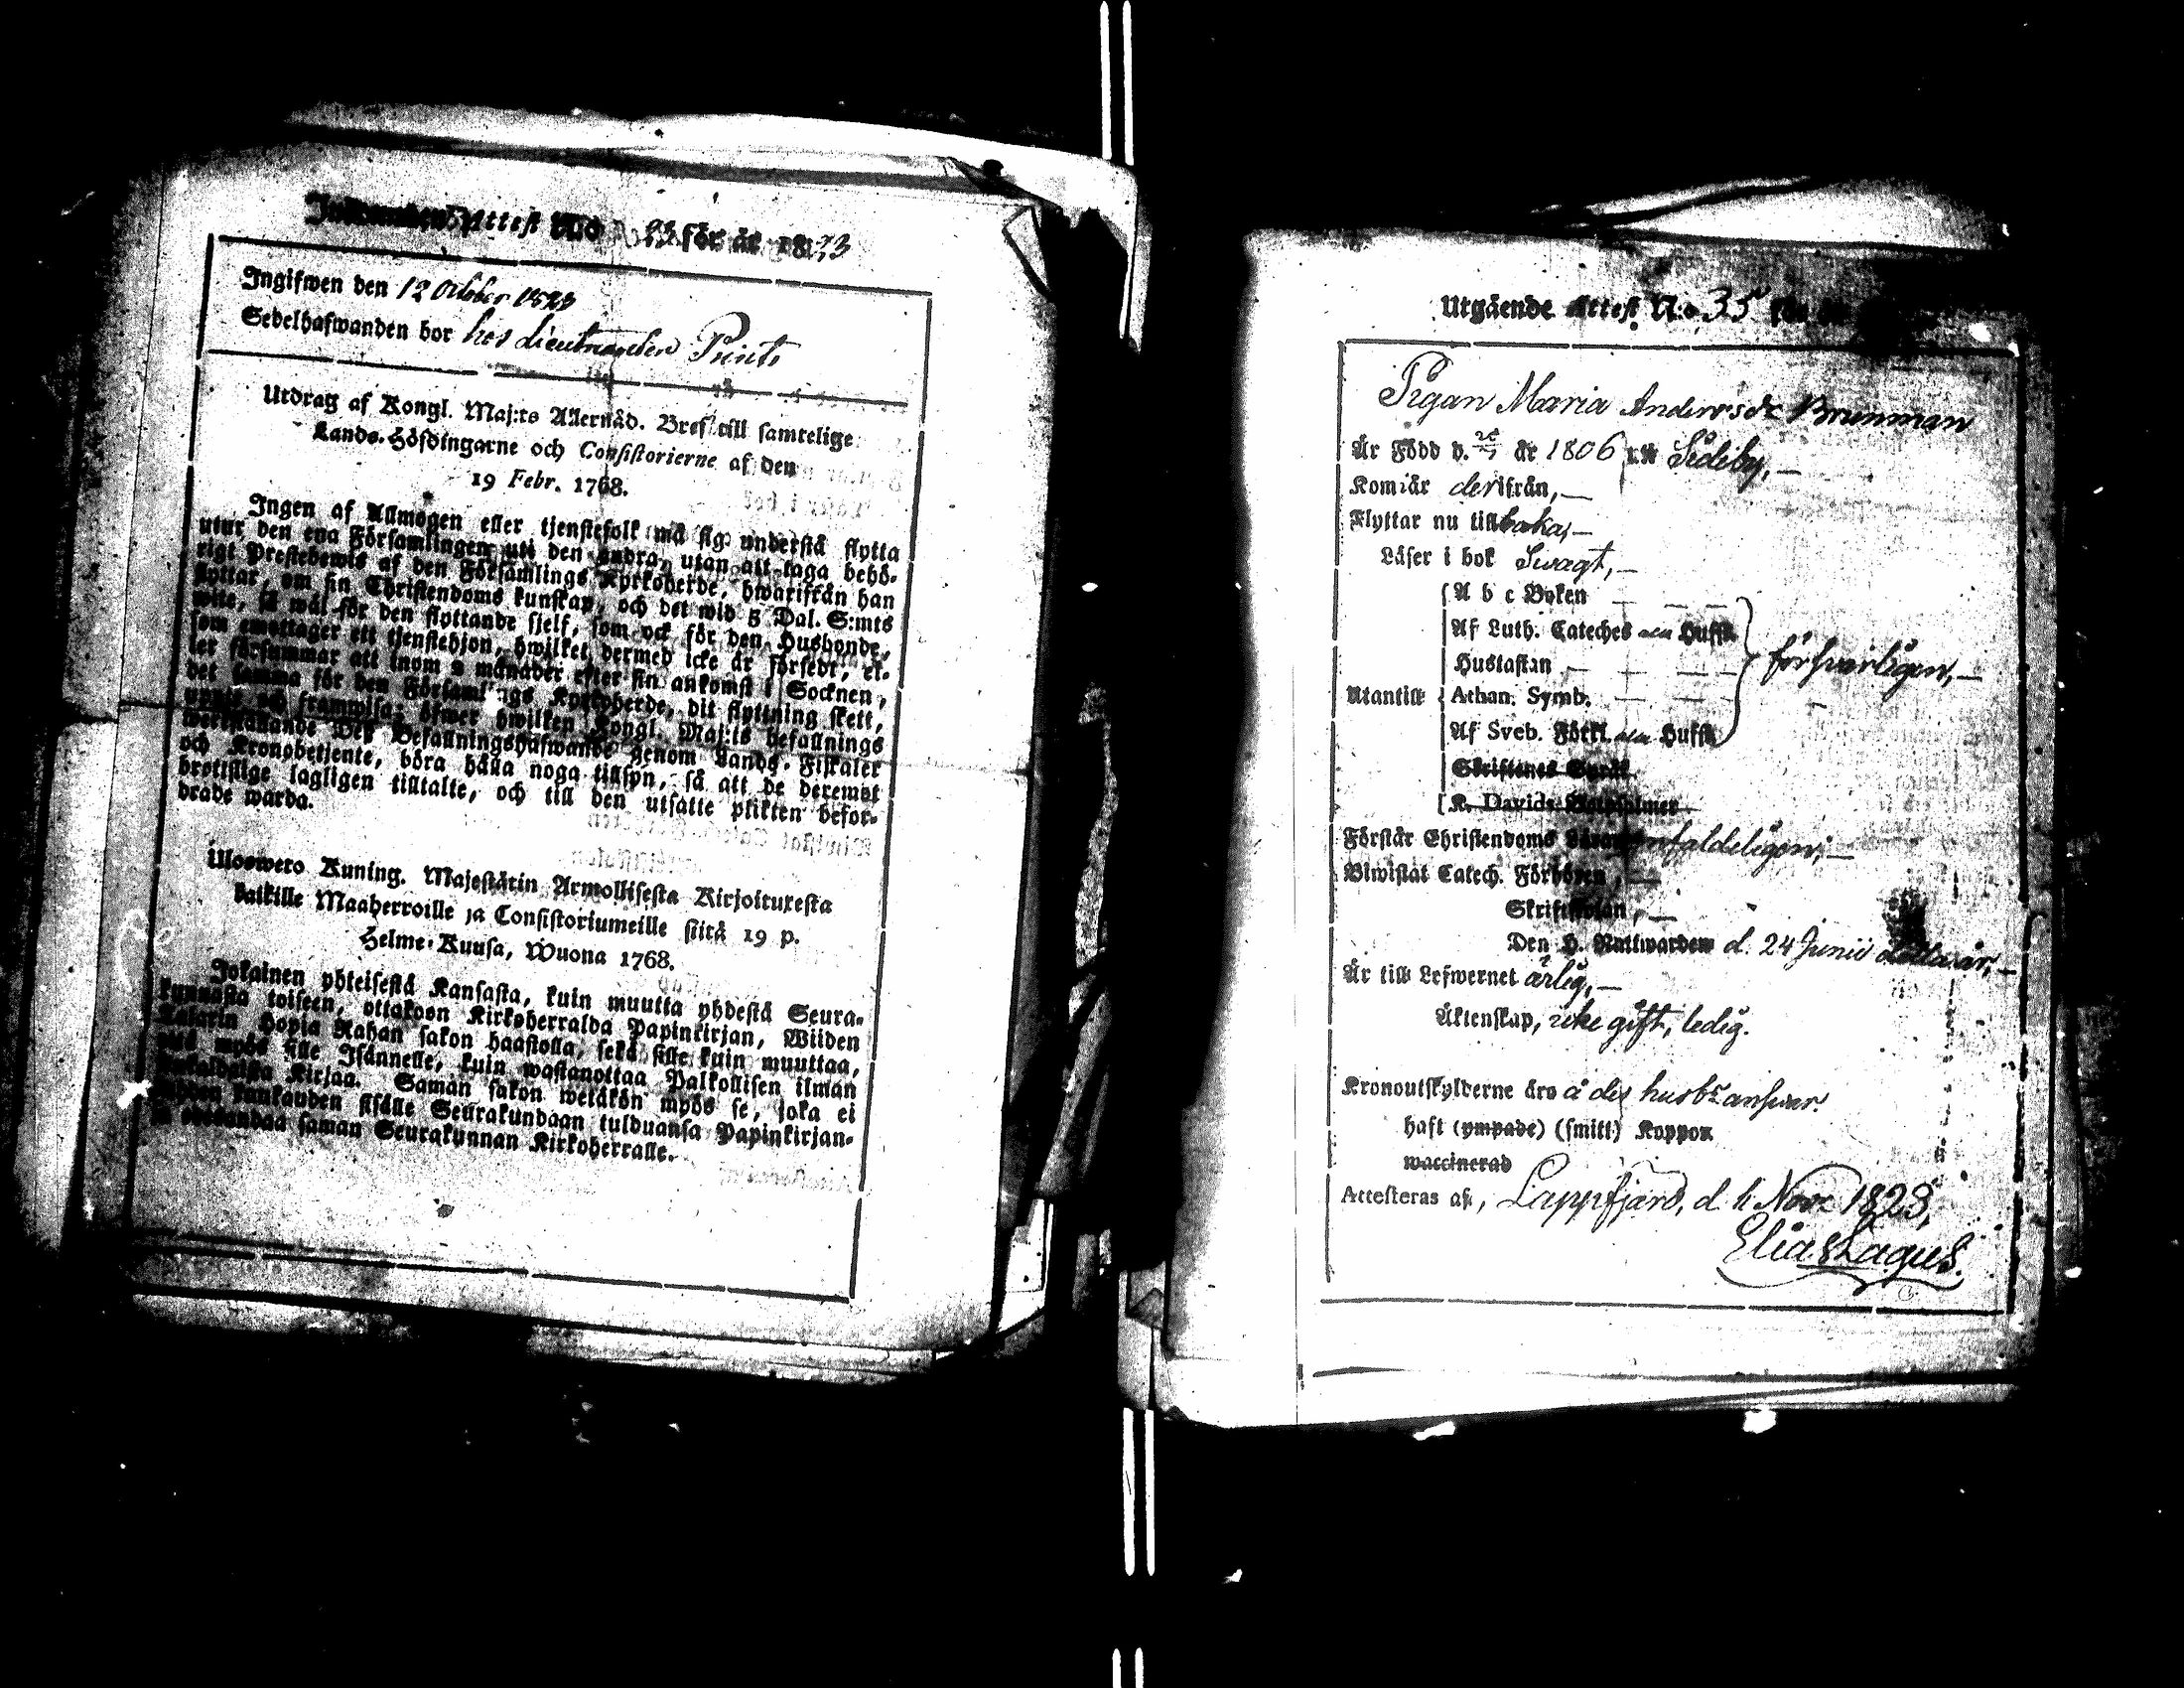 Attest N:o 23 för år 1823
Ingifwen den 12 October 1823
Sedelhafwanden bor hos Lieutnanten Prints
Utdrag af Kongl. Maj:ts Allernåd. Bref till samtelige
Lands-Höfdingarne och Consistorierne af den
19 Febr. 1768.
Ingen af Allmogen eller tjenstefolk må sig understå flytta
utur den ena Församlingen uti den andra, utan att taga behö-
rigt Prestebewis af den Församlings Kyrkoherde, hwarifrån han
flyttar, om sin Christendoms kunskap, och det wid 5 Dal. S:mts
wite, så wäl för den flyttande sjelf, som ock för den Husbonde,
som emottager ett tjenstehjon, hwilket dermed icke är försedt, el-
ler försummar att inom 2 månader efter sin ankomst i Socknen,
det samma för den Församlings Kyrkoherde, dit flyttning skett,
upptе och framwisa; öfwer hwilken Kongl. Maj:ts befallnings
werkställande Des Befallningshafwande genom Lands-Fiskaler
och Kronobetjente, böra hålla noga tillsyn, så att de deremot
brottslige lagligen tilltalte, och till den utsatte plikten befor-
drade warda.
Ulosweto Kuning. Majestätin Armollisesta Kirjoituxesta
kaikille Maaherroille ja Consistoriumeille siitä 19 p.
Helme-Kuusa, Wuona 1768.
Jokainen yhteisestä Kansasta, kuin muutta yhdestä Seura-
kunnasta toiseen, ottakoon Kirkoherralda Papinkirjan, Wiiden
Talarin Hopia Rahan sakon haastolla, sekä sille kuin muuttaa,
että myös sille Isännelle, kuin wastanottaa Palkollisen ilman
Kirjaa. Saman sakon wetäkön myös se, joka ei
kuukauden sisälle Seurakundaan tulduansa Papinkirjan-
sa saman Seurakunnan Kirkoherralle.
Utgående Attest N:o 35 för år
Pigan Maria Andersdr Brunman
Är Född d. år 1806 i Sideby,
Kom i år derifrån,
Flyttar nu tillbaka,
Läser i bok Swagt,
A b c Boken
Af Luth. Cateches Hufst.
Hustaflan
försvarligen,
Utantill Athan. Symb.
Af Sveb. Förkl. Hufst.
Skriftenes Språk
K. Davids Botpsalmer
Förstår Christendoms Läran enfaldeligen,
Biwistat Catech. Förhören,
Skriftskolan,
Den H. Nattwarden d. 24 Junii detta år,
Är till Lefwernet ärlig,
Äktenskap, icke gift, ledig.
Kronoutskylderne äro å dess husb:s answar.
haft (ympade) (smitt) Koppor
waccinerad
Attesteras af, Lappfjärd, d. 11 Nov. 1823,
Elias Lagus.